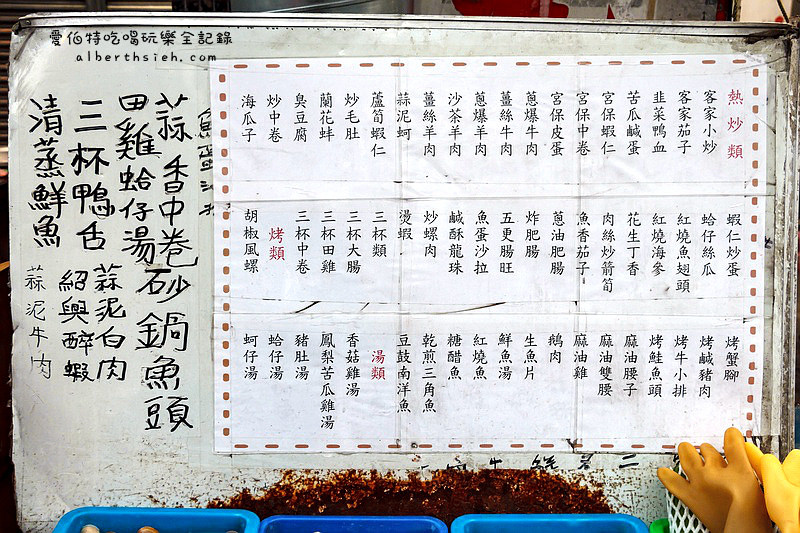 愛伯特吃喝玩樂全記錄
alberthsieh.com
熱炒類
客家小炒
客家茄子
韭菜鴨血
苦瓜鹹蛋
宮保蝦仁
宮保中卷
宮保皮蛋
蔥爆牛肉
薑絲牛肉
蔥爆羊肉
沙茶羊肉
薑絲羊肉
蒜泥蚵
蘆筍蝦仁
炒毛肚
蘭花蚌
臭豆腐
炒中卷
海瓜子
蝦仁炒蛋
蛤仔絲瓜
紅燒魚翅頭
紅燒海參
花生丁香
肉絲炒箭筍
魚香茄子
蔥油肥腸
炸肥腸
五更腸旺
魚蛋沙拉
鹹酥龍珠
炒螺肉
燙蝦
三杯類
三杯大腸
三杯田雞
三杯中卷
烤類
胡椒風螺
烤蟹腳
烤鹹豬肉
烤牛小排
烤鮭魚頭
麻油腰子
麻油雙腰
麻油雞
鵝肉
生魚片
鮮魚湯
紅燒魚
糖醋魚
乾煎三角魚
豆鼓南洋魚
湯類
香菇雞湯
鳳梨苦瓜雞湯
豬肚湯
蛤仔湯
蚵仔湯
蒜香中卷
砂鍋魚頭
田雞蛤仔湯
蒜泥白肉
三杯鴨舌
紹興醉蝦
清蒸鮮魚
蒜泥牛肉